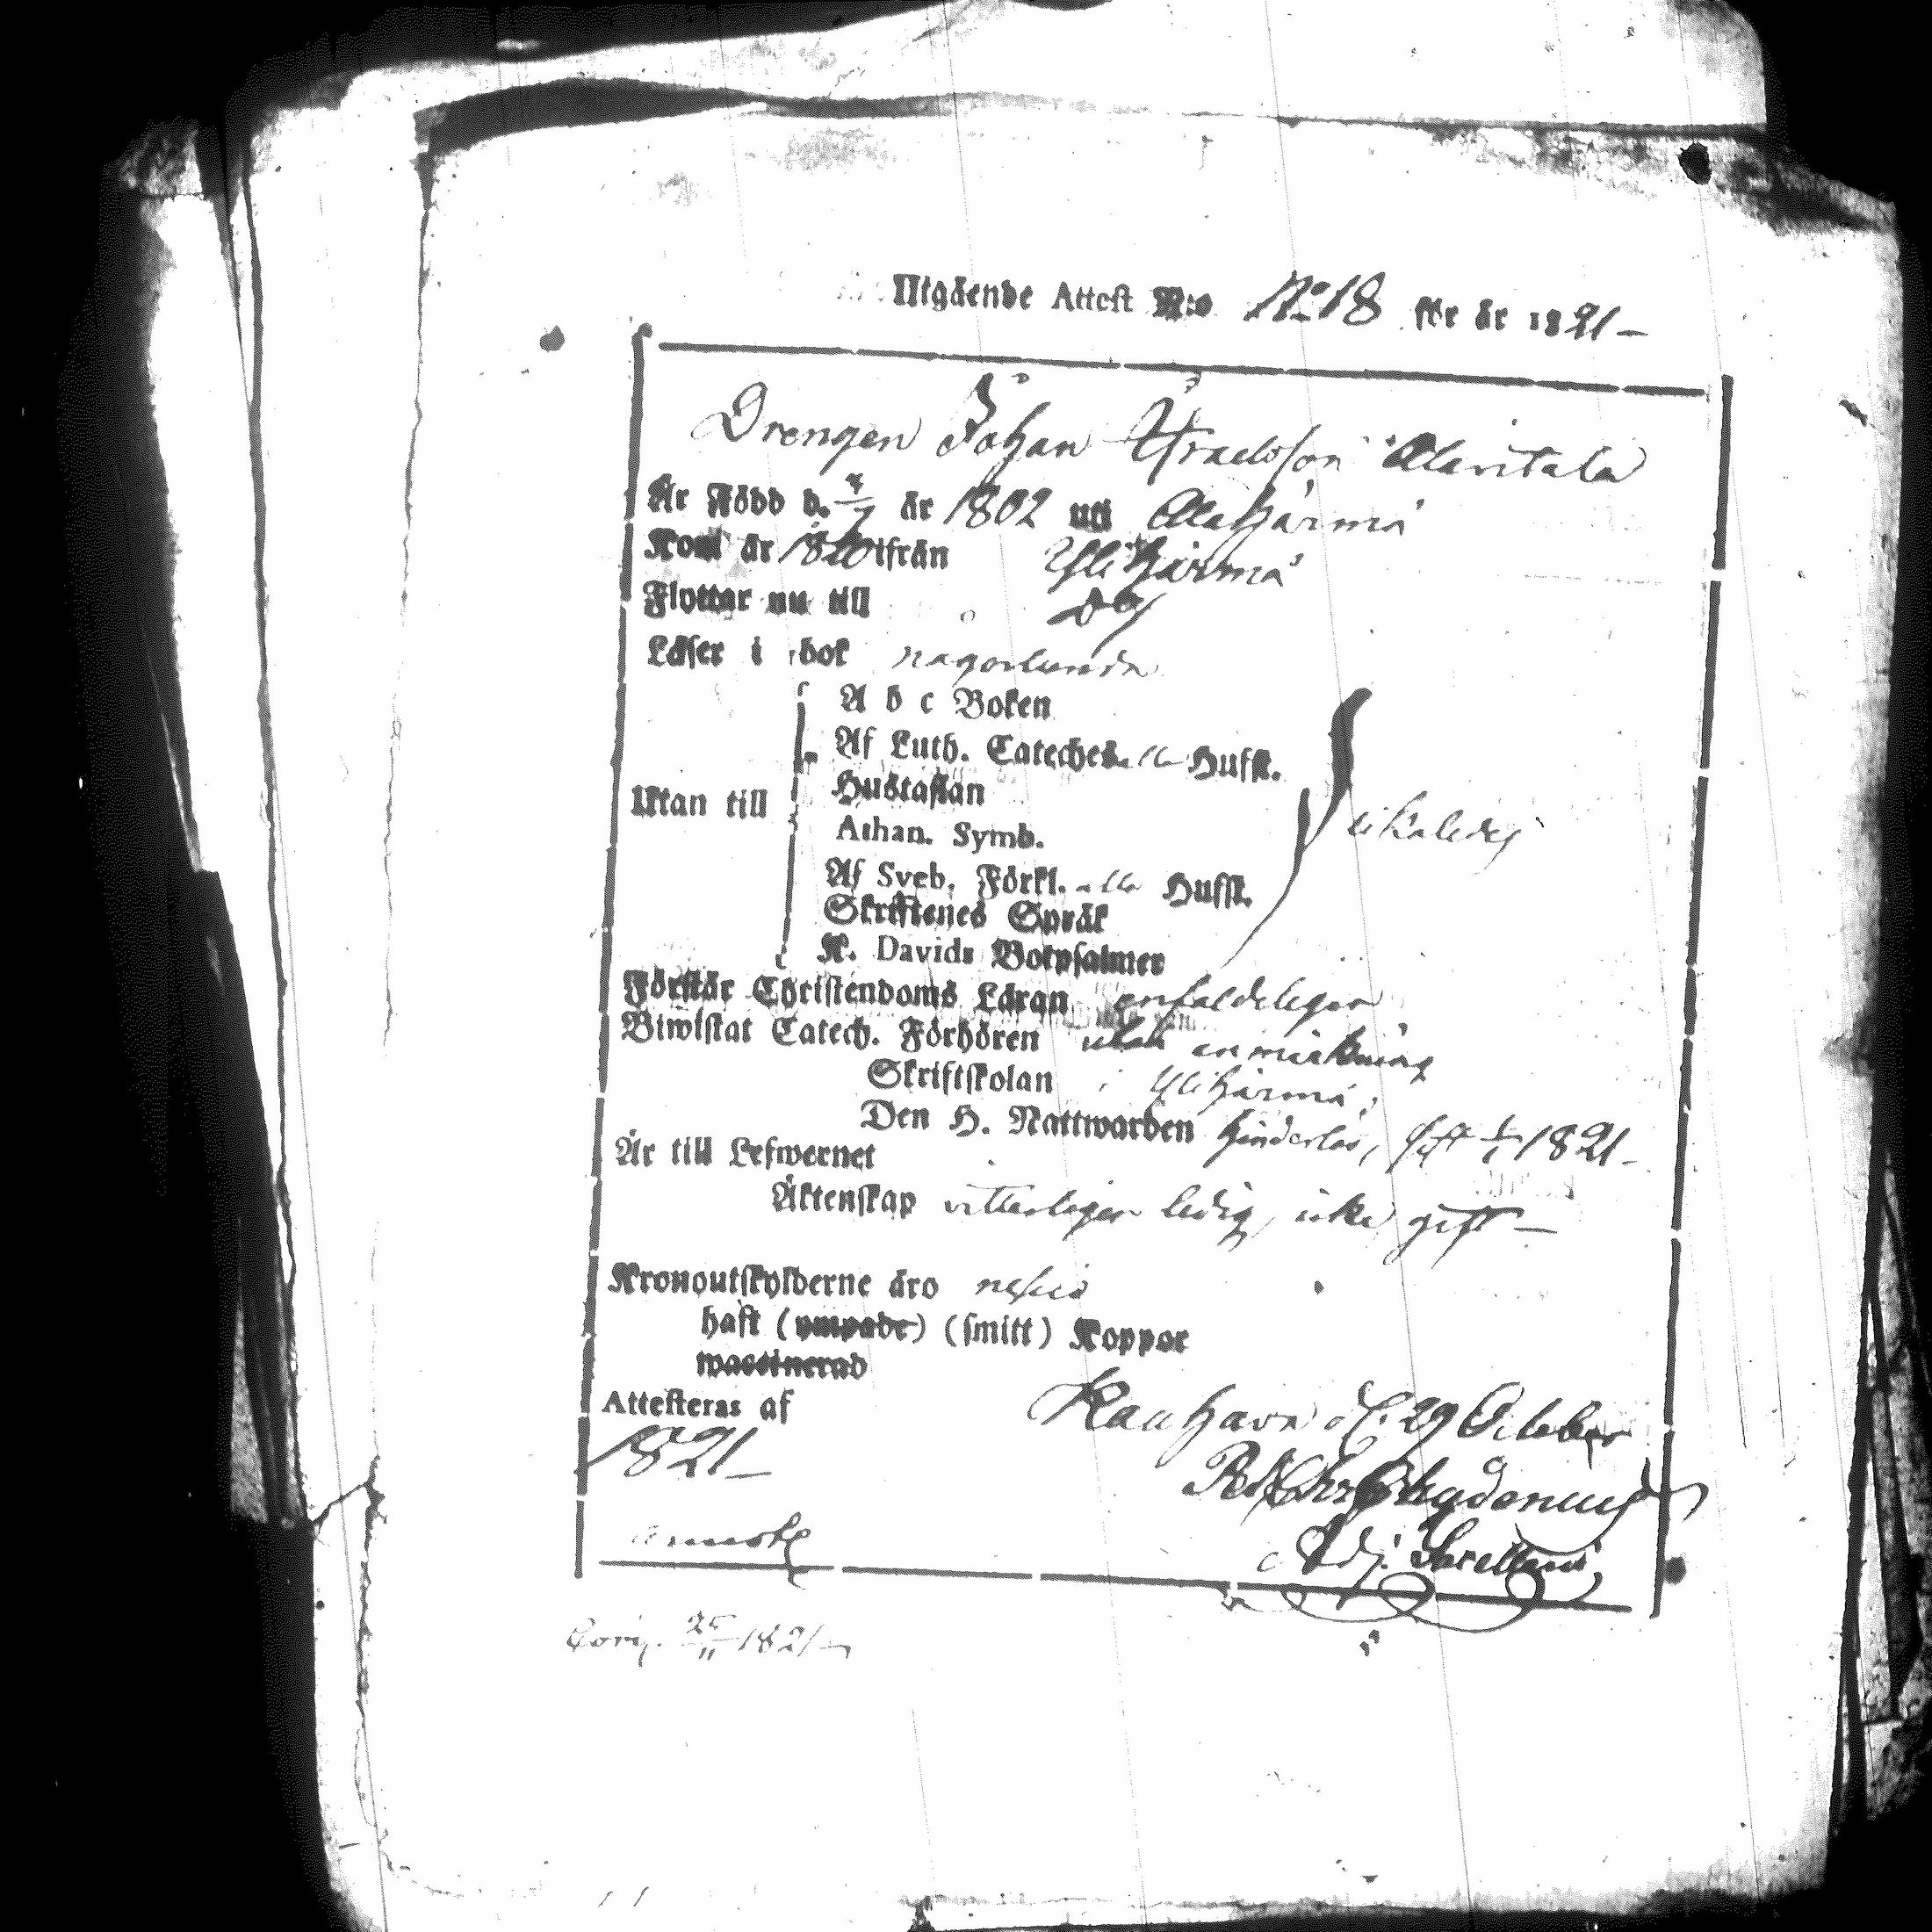 Utgående Attest N:o No 18 för år 1821 –
Drengen Johan Israelsson Alaritala
Är Född d. år 1802 uti Alahärmä
Kom år 1820 ifrån Ylihärmä
Flyttar nu till
Läser i bok någorlunda
A b c Boken
Af Luth. Cateches alla Hufst.
Hustaflan
Utan till
Athan. Symb.
likaledes
Af Sveb. Förkl. alla Hufst.
Skriftenes Språk
K. Davids Botpsalmer
Förstår Christendoms Läran enfaldeligen
Biwistat Catech. Förhören utan anmärkning
Skriftskolan i Ylihärmä,
Den H. Nattwarden hinderlös, sist 1821 –
Är till Lefwernet
Äktenskap vitterligen ledig, icke gift –
Kronoutskylderne äro nescio
haft (ympade) (smitt) Koppor
waccinerad
Attesteras af Kauhava d. 29 October
1821 –
Chydenius
Adj. Sacellani
25/11 1821